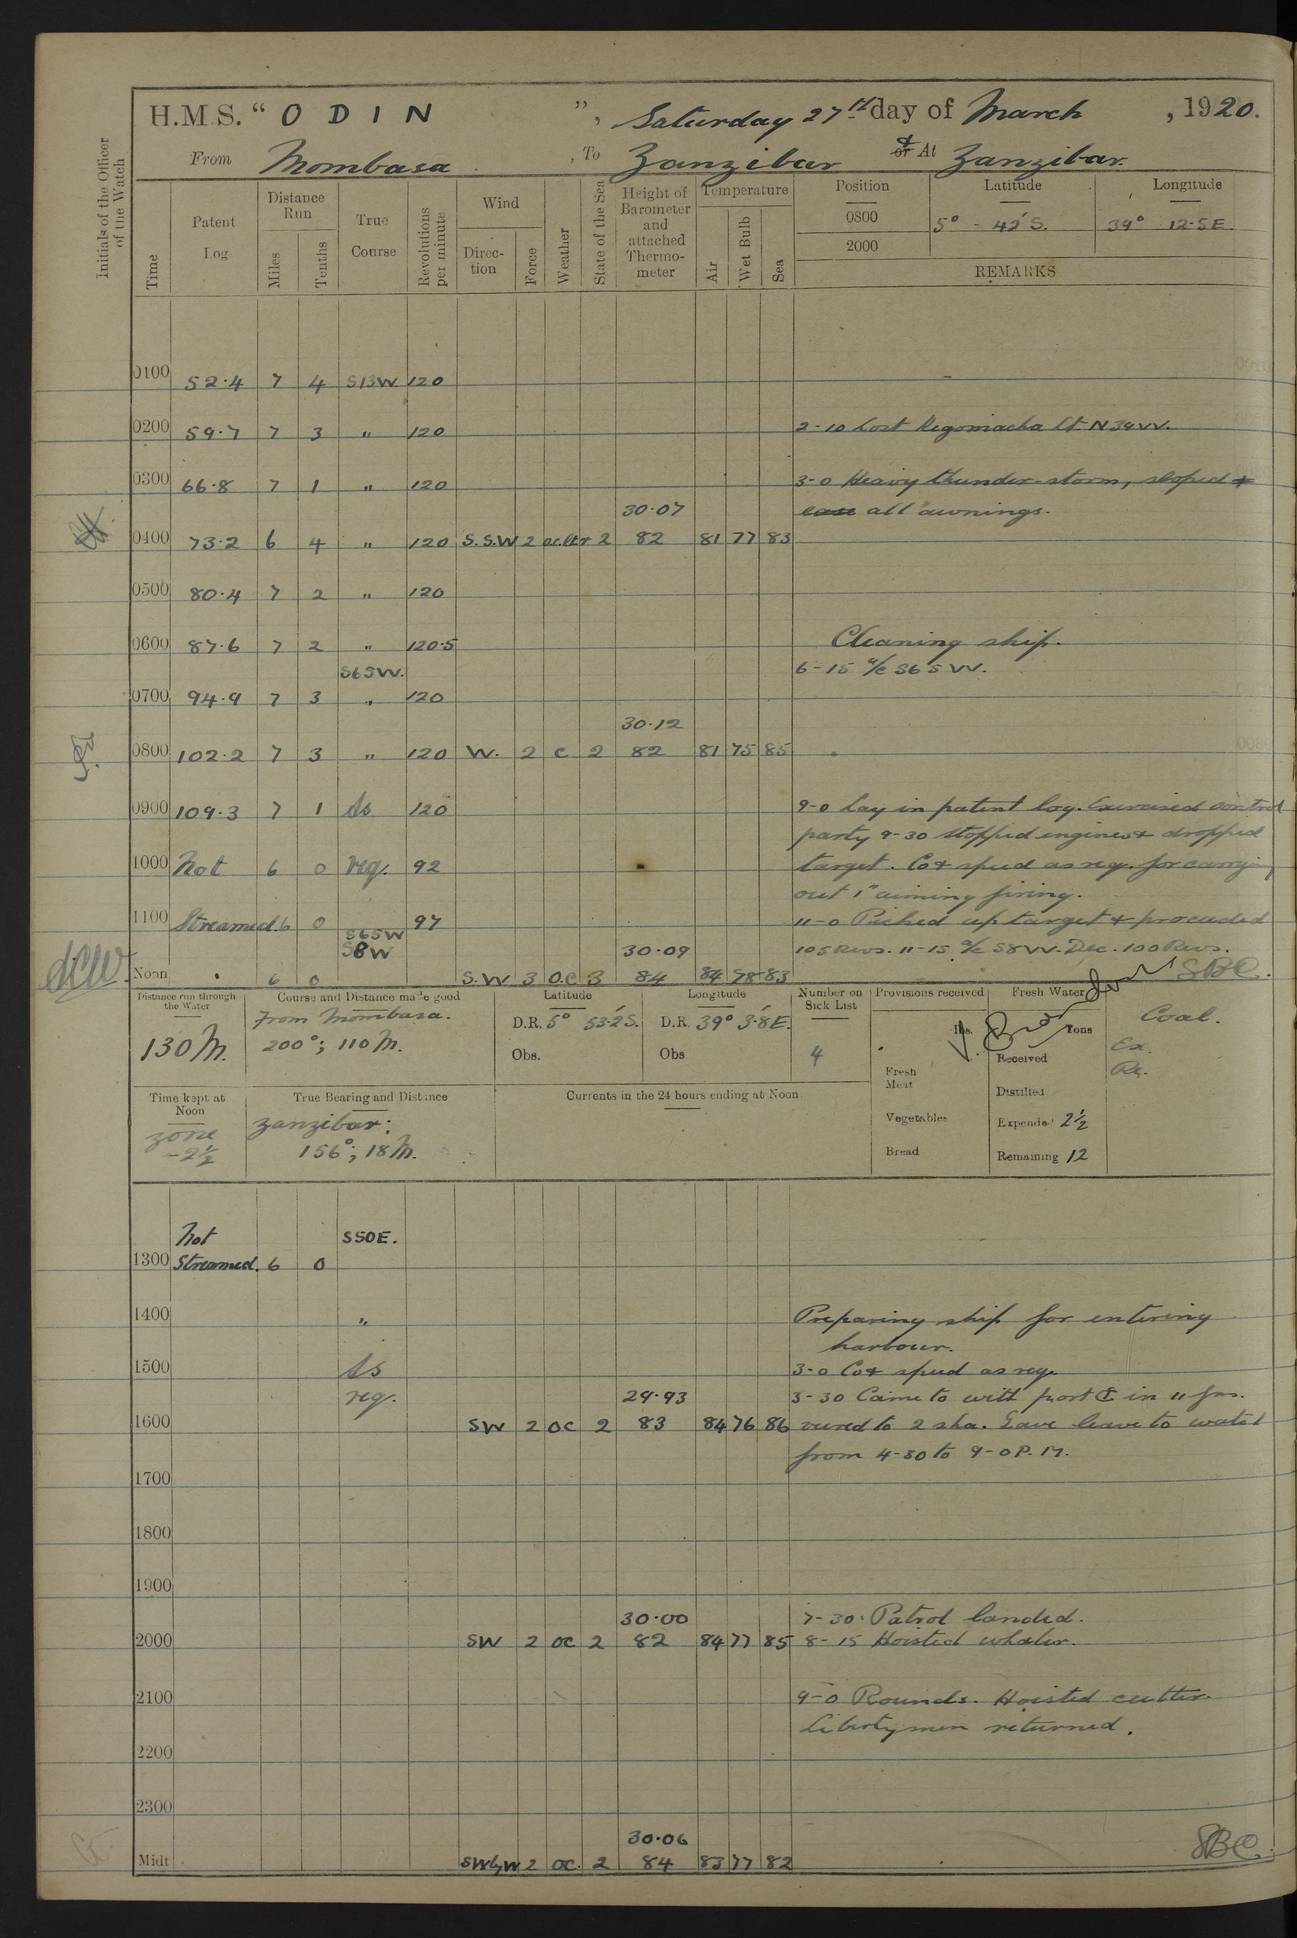 H.M.S. “ O D I N ”, Saturday 27th day of March , 1920.
From Mombasa , To Zanzibar & or At Zanzibar.
Initials of the Officer of the Watch
Time
Patent Log
Distance Run
Miles
Tenths
True Course
Revolutions per minute
Wind
Direction
Force
Weather
State of the Sea
Height of Barometer and attached Thermometer
Temperature
Air
Wet Bulb
Sea
Position Latitude Longitude
0800 5° - 42' S. 39° 12·5E
2000
REMARKS
0100 52·4 7 4 S13W 120
0200 59·7 7 3 " 120 2-10 Lost Lt. N39W.
0300 66·8 7 1 " 120 3-0 Heavy thunder-storm, sloped &
30·07 ease all awnings.
0400 73·2 6 4 " 120 S.S.W 2 2 82 81 77 83
0500 80·4 7 2 " 120
0600 87·6 7 2 " 120·5 Cleaning ship.
S65W. 6-15 a/c S65W.
0700 94·9 7 3 " 120
30·12
0800 102·2 7 3 " 120 W. 2 C 2 82 81 75 85
0900 109·3 7 1 As 120 9-0 Lay in patent log. Exercised control
party 9-30 stopped engines & dropped
1000 Not 6 0 req. 92 target. Co & speed as req. for carrying
out 1" aiming firing.
1100 Streamed. 6 0 97 11-0 Picked up target & proceeded
S65W
S8W 30·09 105 Revs. 11-15 a/c S8W. Dec. 100 Revs.
Noon 6 0 S.W 3 O.C 3 84 84 78 83 SBC.
Distance run through the Water
130 M.
Course and Distance made good
From Mombasa.
200°; 110 M.
Latitude
D.R. 5° 53·2 S.
Obs.
Longitude
D.R. 39° 3·8 E.
Obs
Number on Sick List
4
Provisions received
lbs.
Fresh Meat
Vegetables
Bread
Fresh Water
Tons
Received
Distilled
Expended 2½
Remaining 12
Coal.
Ex.
Re.
Time kept at Noon
Zone
-2½
True Bearing and Distance
Zanzibar:
156°; 18 M.
Currents in the 24 hours ending at Noon
Not S50E.
1300 Streamed. 6 0
1400 " Preparing ship for entering
harbour.
1500 As 3-0 Co & speed as req.
req. 29·93 3-30 Came to with port ⚓ in 11 fms.
1600 SW 2 OC 2 83 84 76 86 veered to 2 sha. Gave leave to watch
from 4-30 to 9-0 P.M.
1700
1800
1900
30·00 7-30 Patrol landed.
2000 SW 2 OC 2 82 84 77 85 8-15 Hoisted whaler.
2100 9-0 Rounds. Hoisted cutter.
Libertymen returned.
2200
2300
30·06
Midt SWbyW 2 OC. 2 84 83 77 82 SBC.